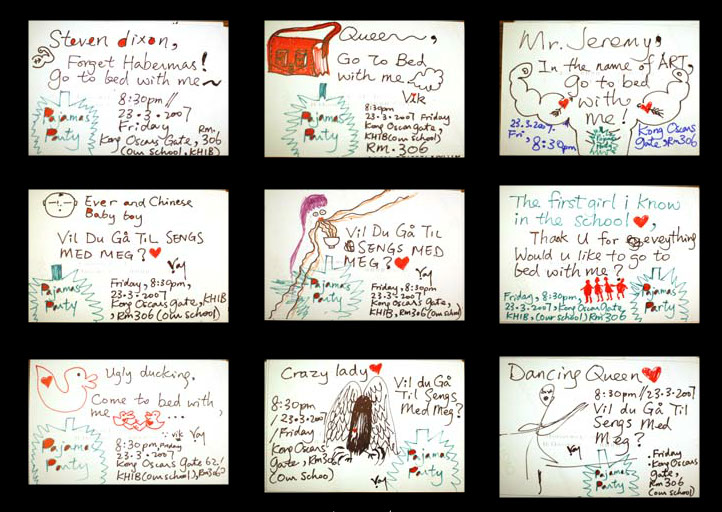 Steven dixon,
Forget Habermas!
go to bed with me~
8:30pm//
23.3.2007
Friday
Kong Oscars Gate, Rm. 306
(Our school, KHIB)
Pajamas
Party
Queen~,
Go To Bed
with me~
Vik
8:30pm
23.3.2007 Friday
Kong Oscars gate,
KHIB(Our school)
RM.306
Pajamas
Party
Mr. Jeremy,
In the name of ART,
go to bed
with
me!
23.3.2007.
Fri,
8:30pm
Kong Oscars
Gate, Rm306
Pajamas
Party
Ever and Chinese
Baby boy
Vil Du Gå Til SENGS
MED MEG?
Yay
Friday, 8:30pm,
23.3.2007
Kong Oscars gate, KHIB
, Rm306 (Our school)
Pajamas
Party
Vil Du Gå Til
SENGS MED
MEG?
Yay
Friday, 8:30pm
23.3.2007
Kong Oscars Gate,
KHIB, Rm306 (Our school)
Pajamas
Party
The first girl i know
in the school,
Thank U for eveything
Would u like to go to
bed with me?
Friday, 8:30pm,
23.3.2007, Kong Oscars Gate
KHIB, (Our school) Rm306
Pajamas
Party
Ugly ducking,
Come to bed with
me ...
vik Yay
8:30pm, Friday
23.3.2007
Kong Oscars Gate 62/
KHIB(Our school), Rm306
Pajamas
Party
Crazy lady
Vil du Gå
Til Sengs
Med Meg?
8:30pm
/23.3.2007
/Friday
Kong Oscars
Gate, Rm306
(Our Schoo)
Yay
Pajamas
Party
Dancing Queen
8:30pm//23.3.2007
Vil du Gå Til
Sengs Med
Meg?
Yay
.Friday
.Kong Oscars
Gate,
Rm 306
(Our school)
Pajamas
Party